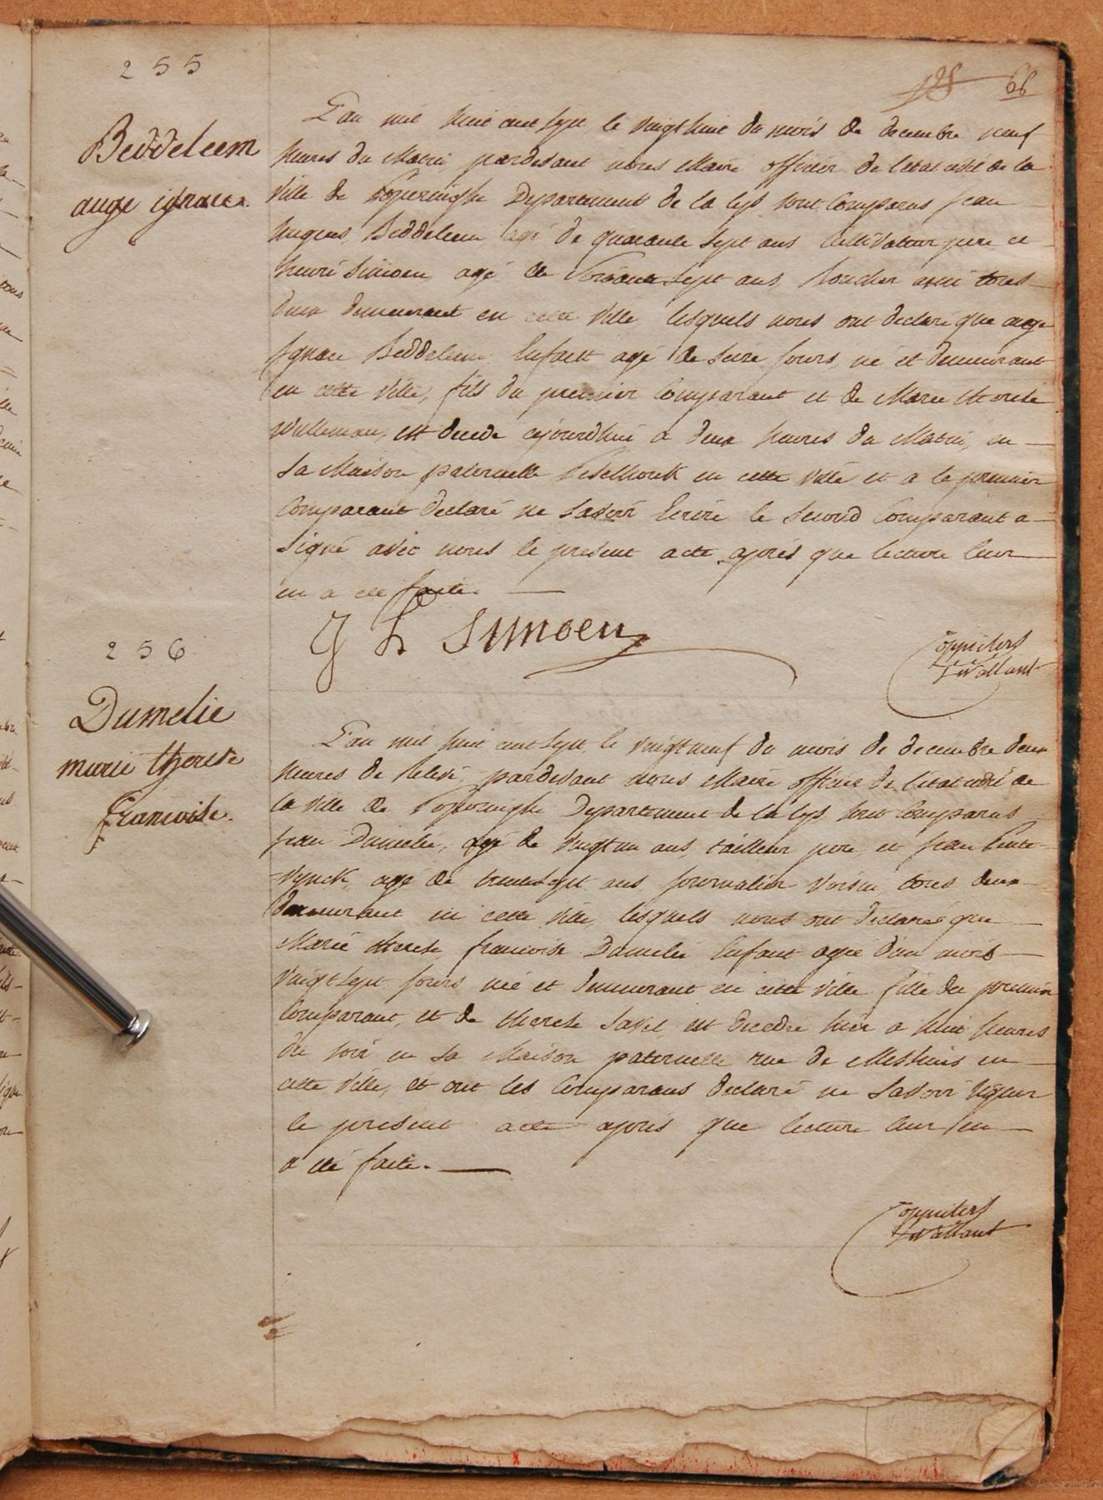 255
128 66
Beddeleem
ange ignace
L'an mil huit cent sept le vingt huit du mois de decembre neuf
heures du Matin pardevant nous Maire officier de letat civil de la
Ville de Poperinghe Departement de la Lys sont Comparus jean
Beddeleem agé de quarante sept ans Cultivateur pere et
henri Simoen agé de sept ans tous
deux demeurant en cette Ville lesquels nous ont declaré que ange
Ignace Beddeleem Enfant agé de seize jours né et demeurant
en cette Ville, fils du premier Comparant et de Marie therese
Willeman, est decede ajourdhui a deux heures du Matin, en
Sa Maison paternelle en cette Ville et a le premier
Comparant declaré ne Savoir Ecrire le Second Comparant a
Signé avec nous le present acte après que lecture leur
en a eté faite.
J h Simoen
256
Dumelie
marie therese
francoise.
L'an mil huit cent sept le vingt neuf du mois de decembre deux
heures de relevé, pardevant nous Maire officier de l'etat civil de
la Ville de Poperinghe Departement de la Lys sont Comparus
jean Dumelie, agé de vingt un ans, tailleur pere et jean
agé de trente sept ans journalier Voisin tous deux
demeurant en cette Ville, lesquels nous ont declaré que
Marie therese francoise Dumelie Enfant agée d'un mois
vingt sept jours, née et demeurant en cette Ville fille du premier
Comparant, et de therese est decedée hier a huit heures
du soir en Sa Maison paternelle rue de en
cette Ville, et ont les Comparans declaré ne Savoir Signer
le present acte après que lecture leur en
a eté faite.